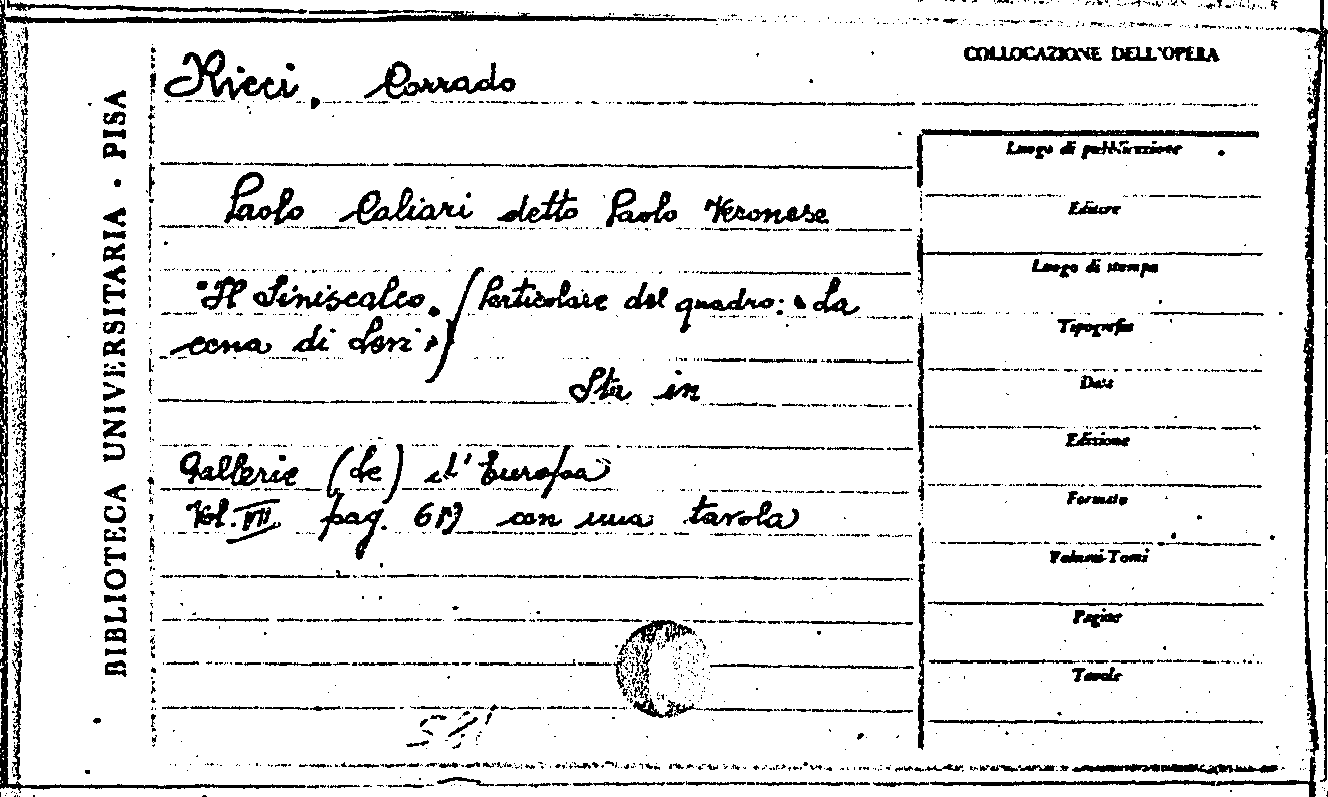 BIBLIOTECA UNIVERSITARIA · PISA
Ricci, Corrado
Paolo Caliari detto Paolo Veronese
"Il Siniscalco. (Particolare del quadro: "La
cena di Levi")
Sta in
Gallerie (Le) d'Europa
Vol. VII pag. con una tavola
COLLOCAZIONE DELL'OPERA
Luogo di pubblicazione
Editore
Luogo di stampa
Tipografia
Data
Edizione
Formato
Volumi-Tomi
Pagine
Tavole